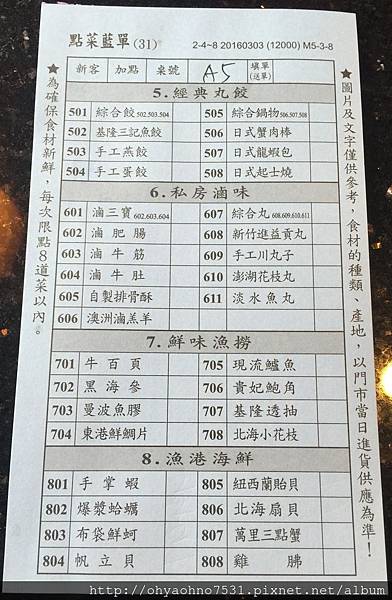 點菜藍單(31) 2-4~8 20160303 (12000) M5-3-8
新客 加點 桌號 A5 填單(送單)
5.經典丸餃
501 綜合餃502.503.504 505 綜合鍋物506.507.508
502 基隆三記魚餃 506 日式蟹肉棒
503 手工燕餃 507 日式龍蝦包
504 手工蛋餃 508 日式起士燒
6.私房滷味
601 滷三寶602.603.604 607 綜合丸608.609.610.611
602 滷肥腸 608 新竹進益貢丸
603 滷牛筋 609 手工川丸子
604 滷牛肚 610 澎湖花枝丸
605 自製排骨酥 611 淡水魚丸
606 澳洲滷羔羊
7.鮮味漁撈
701 牛百頁 705 現流鱸魚
702 黑海參 706 貴妃鮑角
703 曼波魚膠 707 基隆透抽
704 東港鮮鯛片 708 北海小花枝
8.漁港海鮮
801 手掌蝦 805 紐西蘭貽貝
802 爆漿蛤蠣 806 北海扇貝
803 布袋鮮蚵 807 萬里三點蟹
804 帆立貝 808 雞胇
★為確保食材新鮮，每次限點8道菜以內。
★圖片及文字僅供參考，食材的種類、產地，以門市當日進貨供應為準！
http://ohyaohno7531.pixnet.net/album